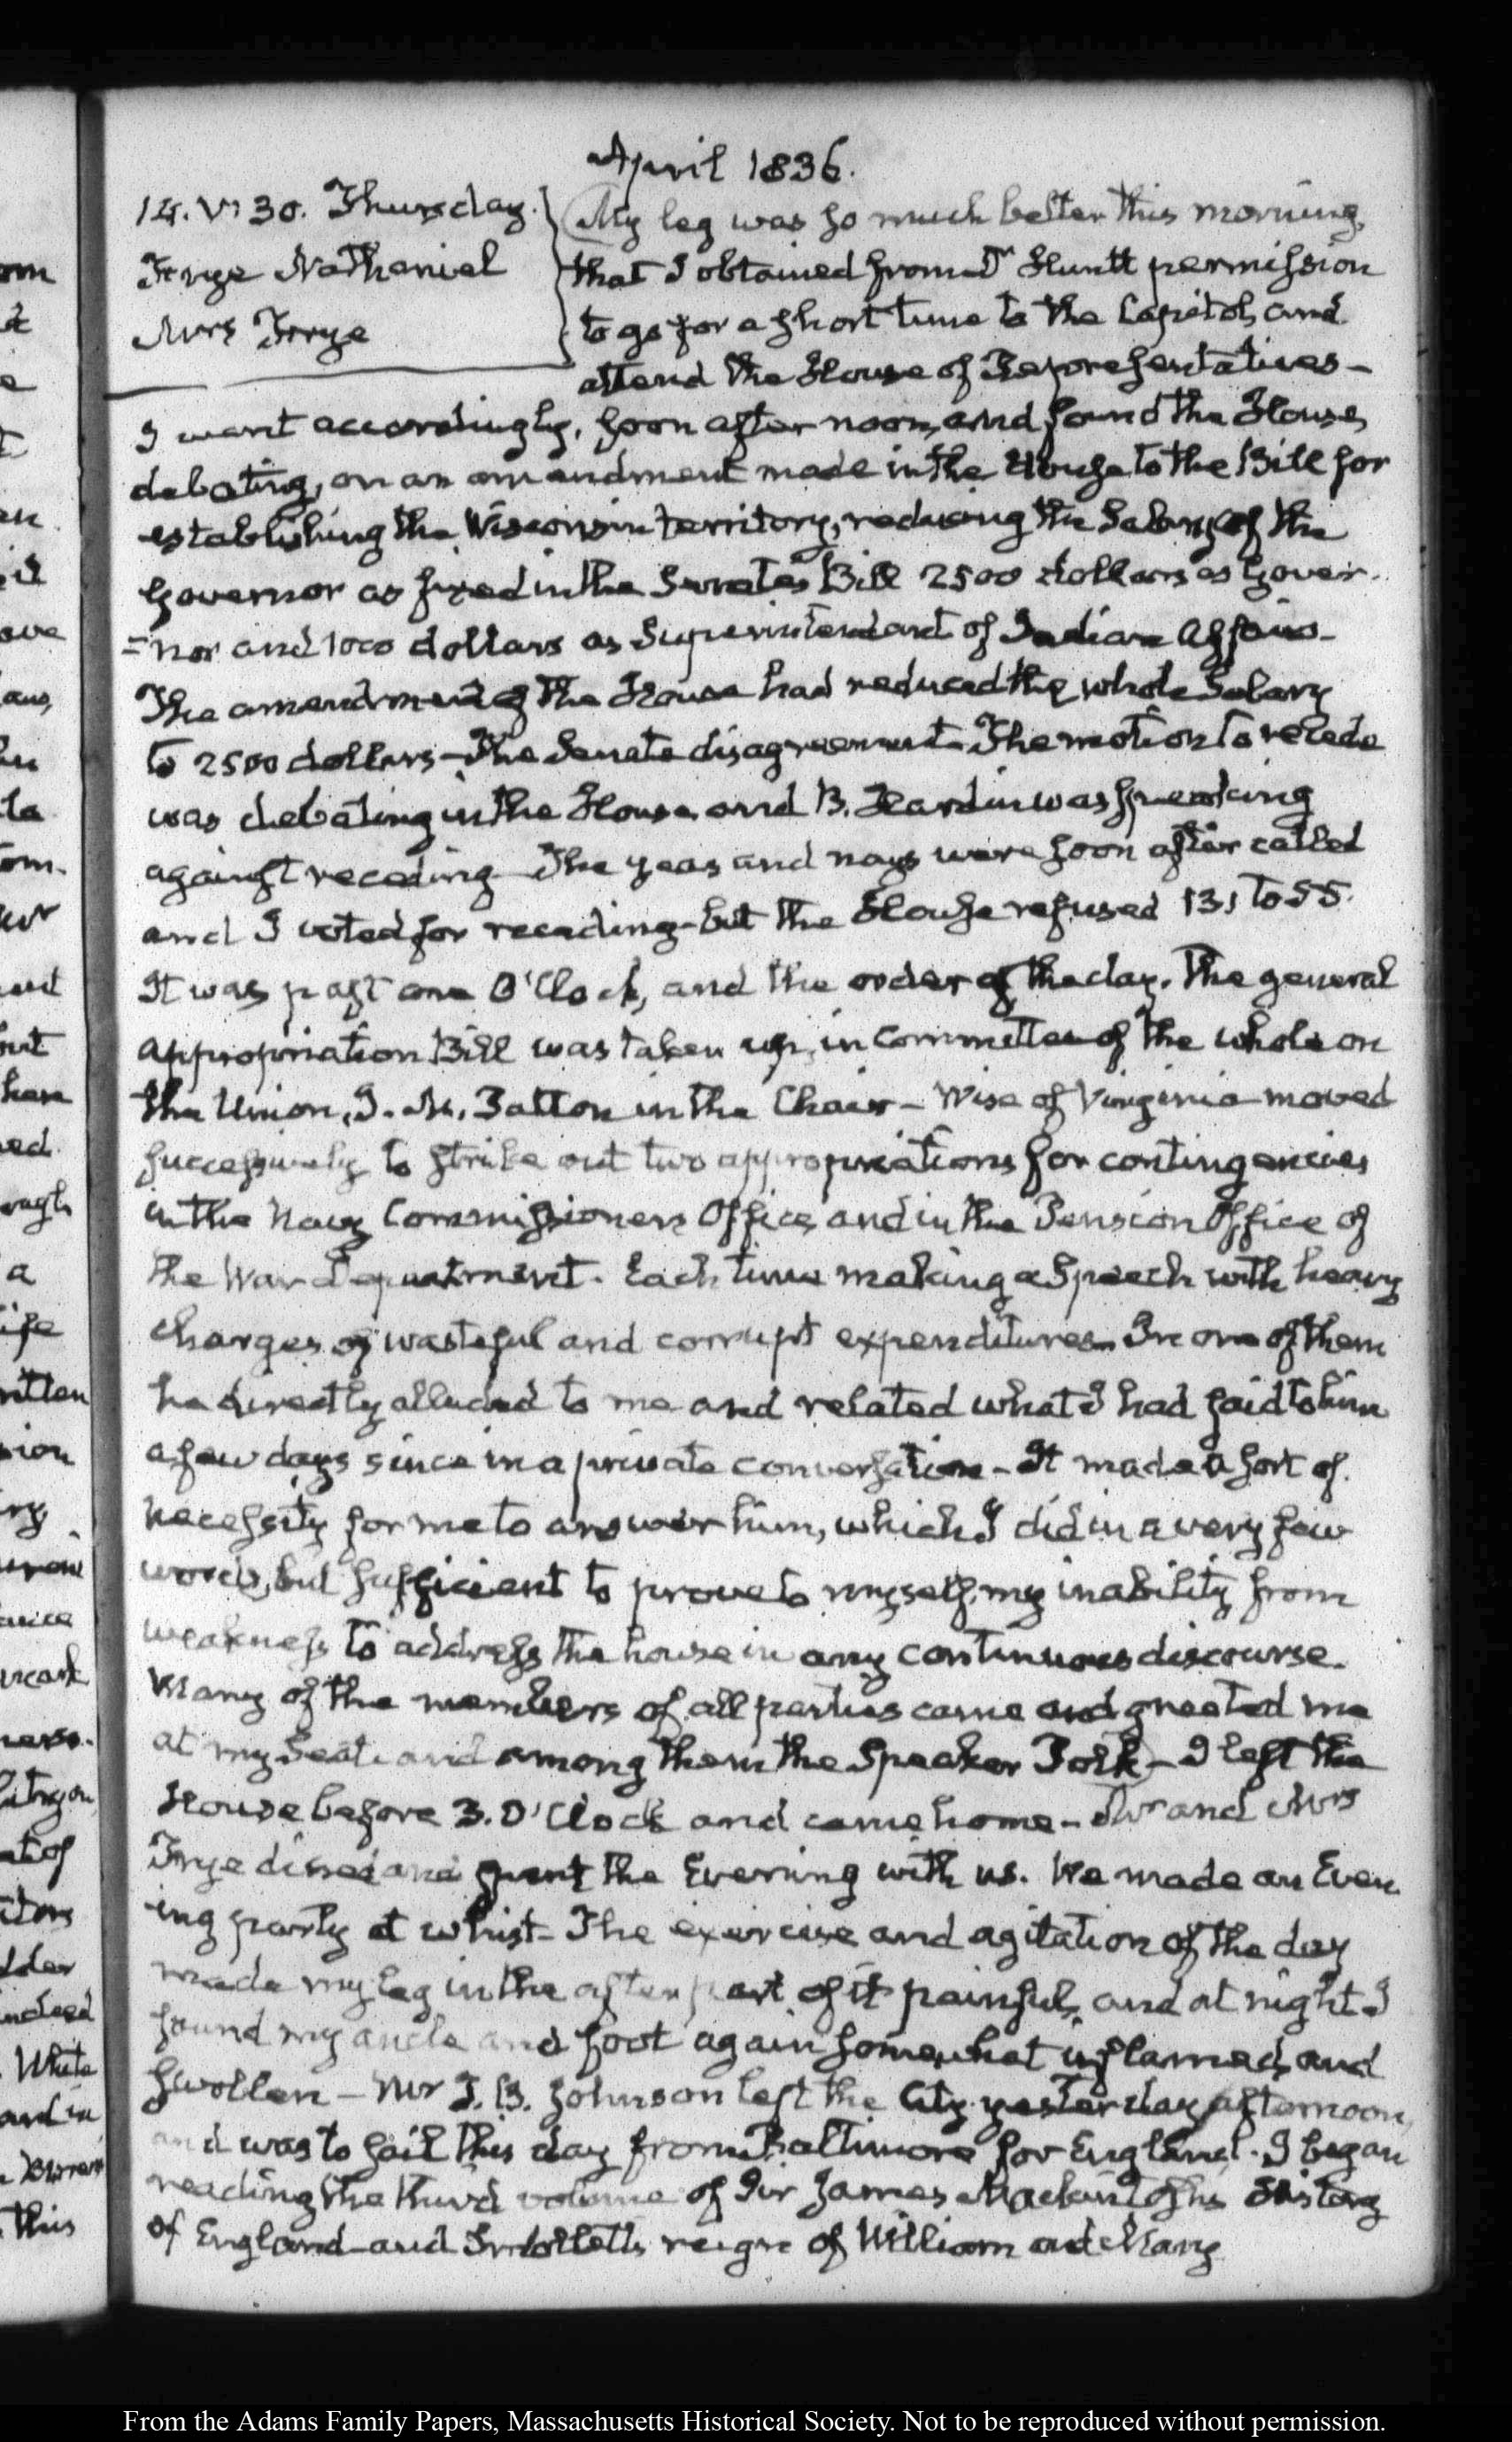 April 1836.
14. VI 30. Thursday.
Frye Nathaniel
Mrs Frye
My leg was so much better this morning,
that I obtained from Dr Huntt permission
to go for a short time to the Capitol, and
attend the House of Representatives—
I went accordingly, soon after noon, and found the House,
debating, on an amendment made in the House to the Bill for
establishing the Wisconsin territory, reducing the Salary of the
Governor as fixed in the Senate's Bill 2500 dollars as Gover-
=nor and 1000 dollars as Superintendant of Indian Affairs—
The amendment of the House had reduced the whole Salary
to 2500 dollars—The Senate disagreement—The motion to recede
was debating in the House and B. Hardin was speaking
against receding—The yeas and nays were soon after called
and I voted for receding—but the House refused 131 to 55.
It was past one O'Clock, and the order of the day. The general
appropriation Bill was taken up, in Committee of the whole on
the Union, J. M. Patton in the Chair—Wise of Virginia moved
successively to strike out two appropriations for contingencies
in the Navy Commissioners Office, and in the Pension Office of
the War Department. Each time making a Speech with heavy
charges of wasteful and corrupt expenditures—In one of them
he directly alluded to me and related what I had said to him
a few days since in a private conversation—It made a sort of
necessity for me to answer him, which I did in a very few
words, but sufficient to prove to myself, my inability from
weakness to address the house in any continuous discourse.
Many of the members of all parties came and greeted me
at my Seat and among them the Speaker Polk—I left the
House before 3. O'Clock and came home—Mr and Mrs
Frye dined and spent the Evening with us. We made an Even
ing party at whist—The exercise and agitation of the day
made my leg in the after part of it painful, and at night I
found my ancle and foot again somewhat inflamed, and
swollen—Mr J. B. Johnson left the City yesterday afternoon,
and was to sail this day from Baltimore for England. I began
reading the third volume of Sir James Mackintosh's History
of England—and Smollett's reign of William and Mary
From the Adams Family Papers, Massachusetts Historical Society. Not to be reproduced without permission.